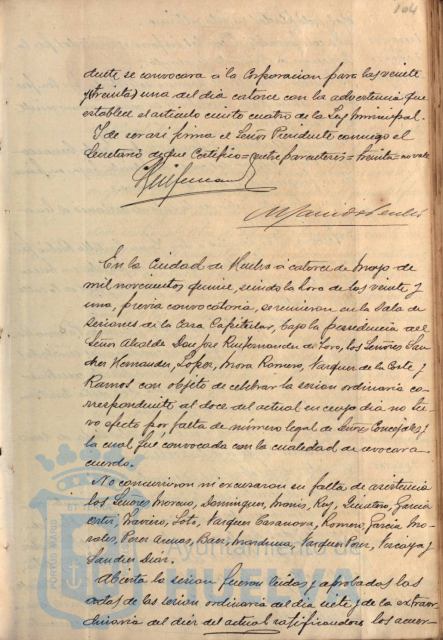 104
duete se convocara á la Corporacion para las veinte
y (treinta) una del dia catorce con la advertencia que
establece el articulo ciento cuatro de la Ley Municipal.
Y de ser asi firma el Señor Presidente conmigo el
Secretario de que Certifico = entre parentesis = treinta = no vale
En la Ciudad de Huelva á catorce de Mayo de
mil novecientos quince, siendo la hora de las veinte y
una, previa convocatoria, se reunieron en la Sala de
sesiones de la Casa Capitular, bajo la presidencia del
Señor Alcalde Don José Ruifernandez de Toro, los Señores San-
chez Hernandez, Lopez, Mora Romero, Vazquez de la Corte y
Ramos con objeto de celebrar la sesion ordinaria co-
rrespondiente al doce del actual en cuyo dia no tu-
vo efecto por falta de número legal de Sres Concejales y
la cual fué convocada con la cualidad de
cuerdo.
No concurrieron ni excusaron su falta de asistencia
los Señores Moreno, Dominguez, Monis, Rey, Quintero, Garcia
Traviero, Soto, Vazquez Casanova, Romero, Garcia Mo-
rales, Perez Armas, Baez, Marchena, Vazquez Perez, Vizcaya y
Sanchez Diaz.
Abierta la sesion fueron leidas y aprobadas las
actas de las sesion ordinaria del dia siete y de la extraor-
dinaria del diez del actual ratificandose los acuer-
PORTUS MARIS
Ayuntamiento de
HUELVA